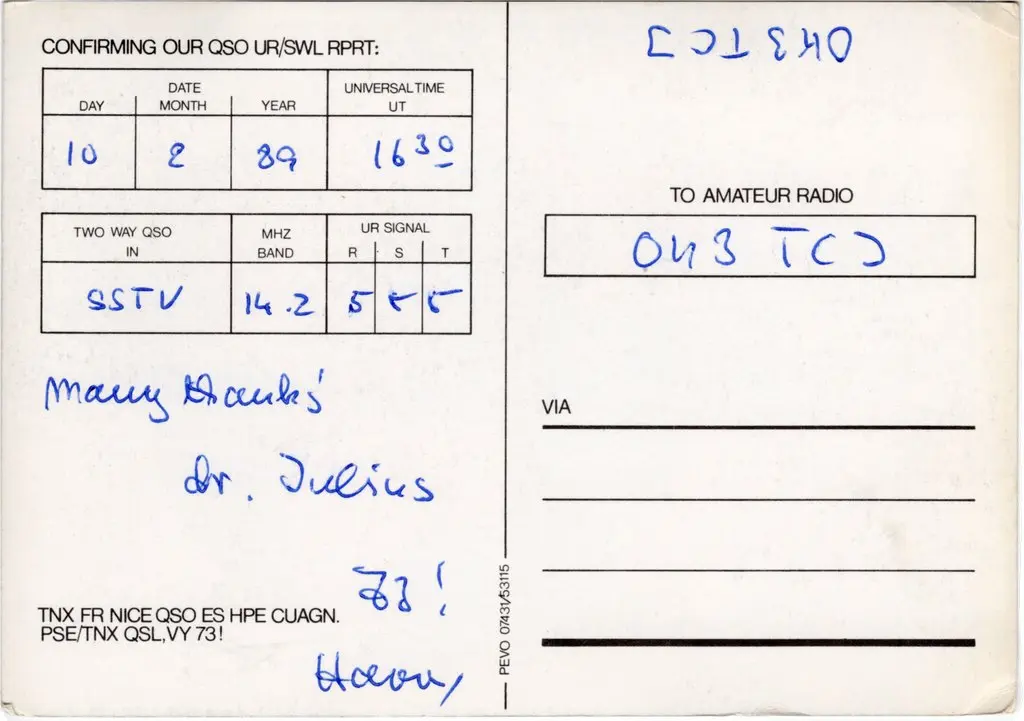 CONFIRMING OUR QSO UR/SWL RPRT:
DATE
UNIVERSAL TIME
DAY MONTH YEAR UT
10 2 89 16 30
TWO WAY QSO MHZ UR SIGNAL
IN BAND R S T
SSTV 14.2 5 5 5
Many thanks
dr. Julius
73!
TNX FR NICE QSO ES HPE CUAGN.
PSE/TNX QSL, VY 73!
Harry
PEVO 07431/53115
OK3 TCJ
TO AMATEUR RADIO
OK3 TCJ
VIA